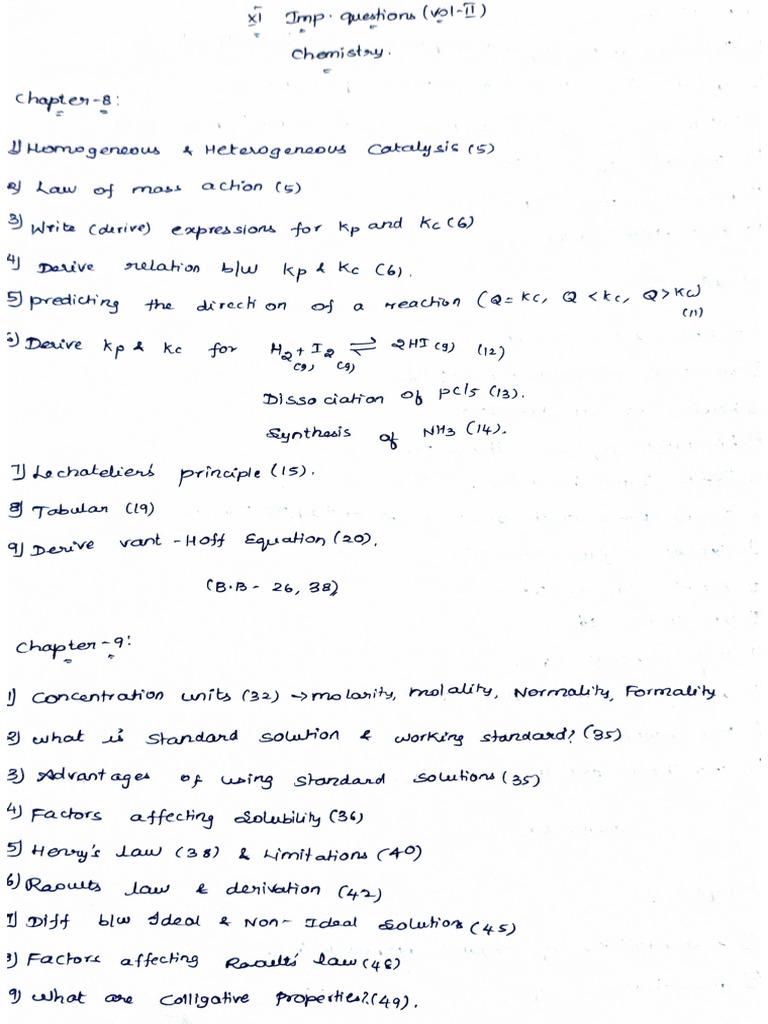 XI Imp. questions (vol-II)
Chemistry.
Chapter-8:
1) Homogeneous & Heterogeneous Catalysis (5)
2) Law of mass action (5)
3) Write (derive) expressions for kp and Kc (6)
4) Derive relation b/w Kp & Kc (6).
5) predicting the direction of a reaction (Q= KC, Q < KC, Q > KC)
(11)
6) Derive kp & Kc for H2 + I2 ⇌ 2HI (g) (12)
(g) (g)
Dissociation of pcl5 (13).
Synthesis of NH3 (14).
7) Lechatelier's principle (15).
8) Tabular (19)
9) Derive vant-Hoff Equation (20).
(B.B - 26, 38)
Chapter-9:
1) Concentration units (32) → molarity, molality, Normality, Formality.
2) what is standard solution & working standard? (35)
3) Advantages of using standard solutions (35)
4) Factors affecting solubility (36)
5) Henry's law (38) & Limitations (40)
6) Raoults law & derivation (42)
7) Diff b/w Ideal & Non-Ideal solutions (45)
8) Factors affecting Raoults' law (46)
9) what are Colligative Properties? (49).